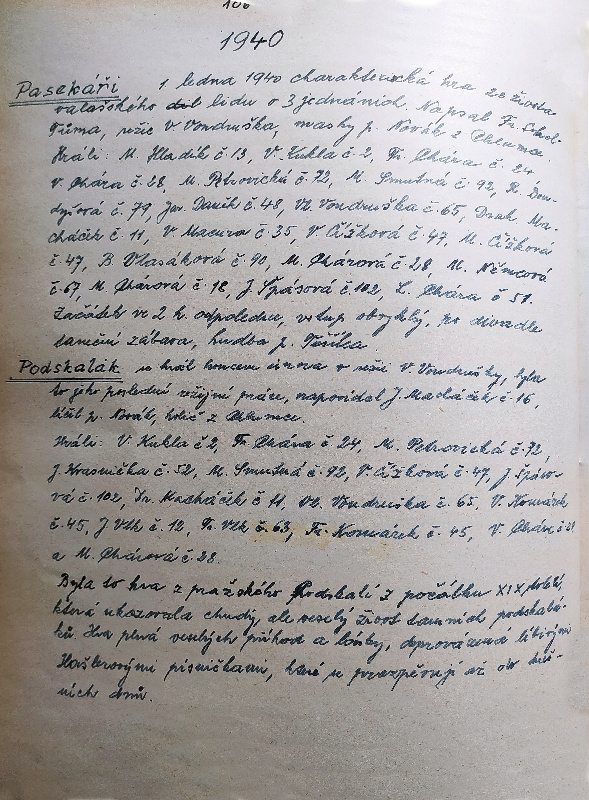 106
1940
Pasekáři 1. ledna 1940 charakteristická hra ze života
valašského lidu o 3 jednáních. Napsal Fr. Sokol-
Tůma, režie V. Vondruška, masky p. Novák z Chlumce.
Hráli: M. Hladík č. 13, V. Kukla č. 2, Fr. Chára č. 24
V. Chára č. 28, M. Petrovická č. 72, M. Smutná č. 92, R. Don-
dyšová č. 79, Jar. Daněk č. 48, Vl. Vondruška č. 65, Drah. Ma-
cháček č. 11, V. Macura č. 35, V. Čížková č. 47, M. Čížková
č. 47, B. Vlasáková č. 90, M. Chárová č. 28, M. Němcová
č. 67, M. Chárová č. 18, J. Špásová č. 102, L. Chára č. 51.
Začátek ve 2 h. odpoledne, vstup obvyklý, po divadle
taneční zábava, hudba p. Tušilca.
Podskalák se hrál koncem února v režii V. Vondrušky, byla
to jeho poslední režijní práce, napovídal J. Macháček č. 16,
líčil p. Novák, holič z Chlumce.
Hráli: V. Kukla č. 2, Fr. Chára č. 24, M. Petrovická č. 72,
J. Krasnička č. 52, M. Smutná č. 92, V. Čížková č. 47, J. Špáso-
vá č. 102, Dr. Macháček č. 11, Vl. Vondruška č. 65, V. Komárek
č. 45, J. Vlk č. 12, Fr. Vlk č. 63, Fr. Komárek č. 45, V. Chára č. 28
a M. Chárová č. 28.
Byla to hra z pražského Podskalí z počátku XIX století,
která ukazovala chudý, ale veselý život tamních podskalá-
ků. Hra plná veselých příhod a lásky, doprovázená líbivými
Hašlerovými písničkami, které se prozpěvují až do dneš-
ních dnů.